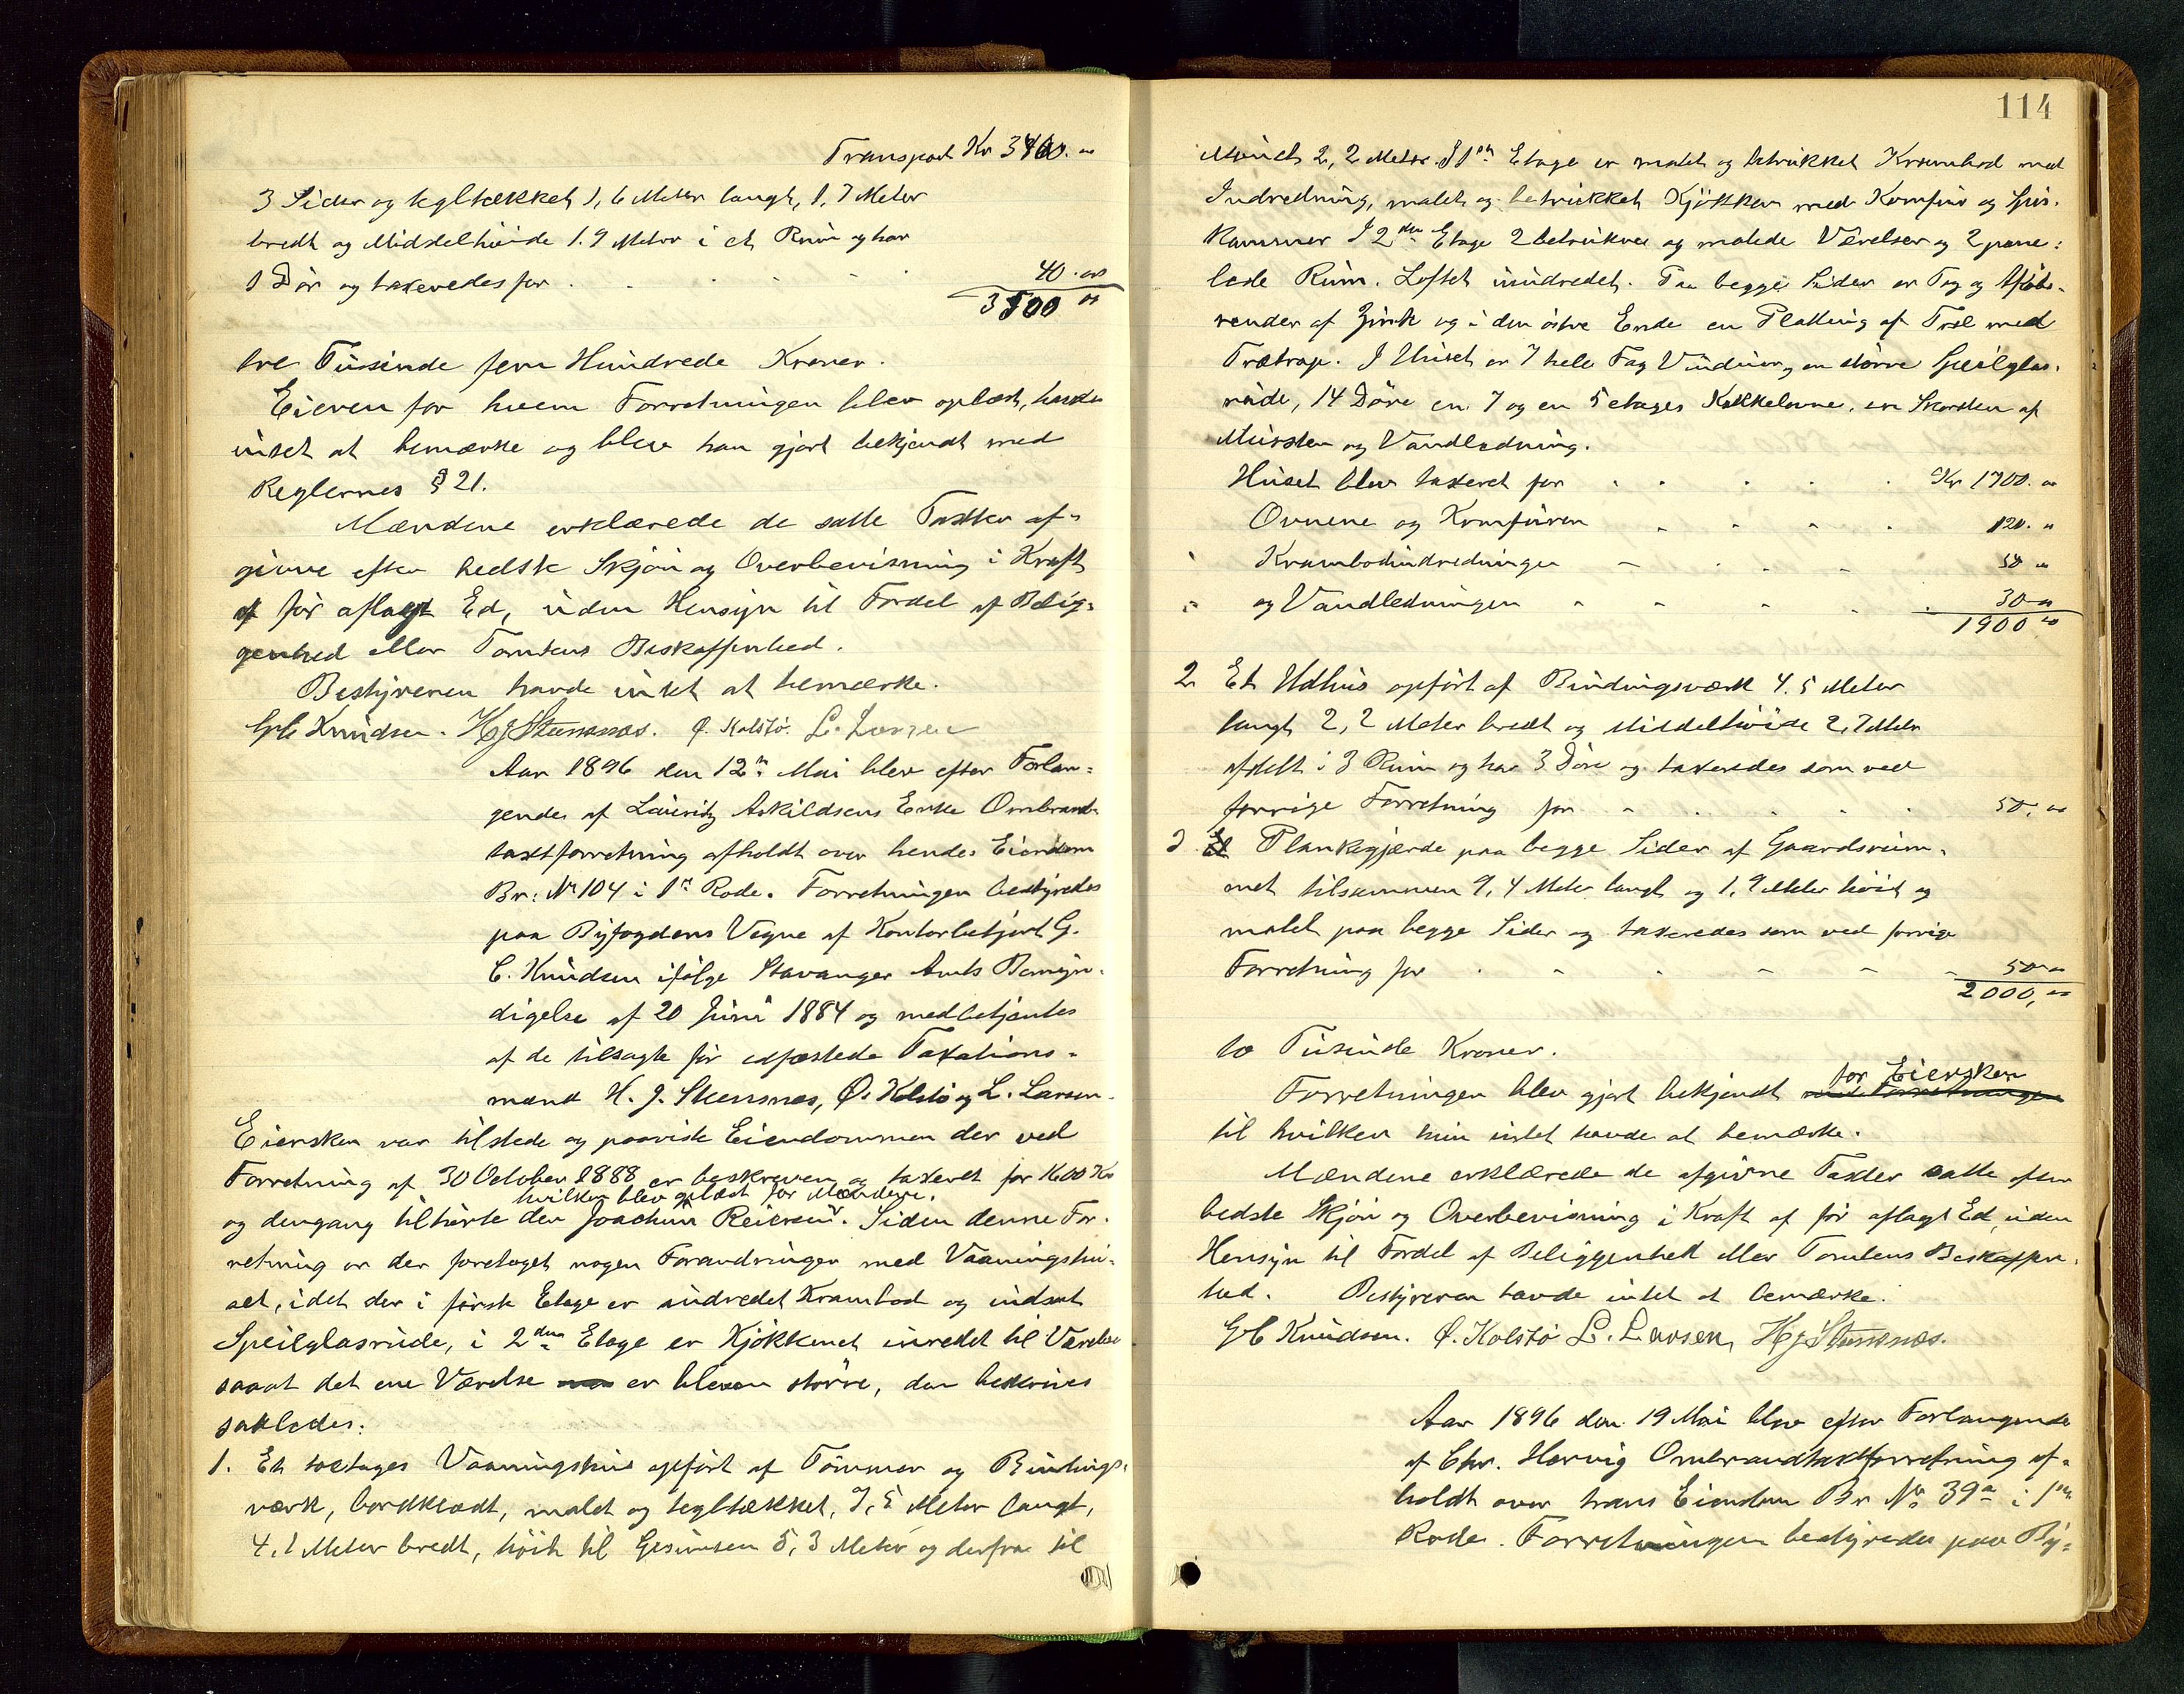 Transport Kr 3460. "
3 Sider og tegltækket 1,6 Meter langt, 1,7 Meter
bredt og Middelhöide 1.9 Meter i et Rum og har
1 Dör og taxeredes for . . . . . 40. "
3500 "
tre Tusinde fem Hundrede Kroner.
Eieren for hvem Forretningen blev oplæst, havde
intet at bemærke og blev han gjort bekjendt med
Reglernes § 21.
Mændene erklærede de satte Taxter af-
givne efter bedste Skjön og Overbevisning i Kraft
af för aflagt Ed, uden Hensyn til Fordel af Belig-
genhed eller Tomtens Beskaffenhed.
Bestyreren havde intet at bemærke.
G C Knudsen. H J Stensnæs. Ø. Kolstö. L. Larsen
Aar 1896 den 12te Mai blev efter Forlan-
gende af Lauritz Askildsens Enke Ombrand-
taxtforretning afholdt over hendes Eiendom
Br: No 104 i 1ste Rode. Forretningen bestyredes
paa Byfogdens Vegne af Kontorbetjent G.
C. Knudsen ifölge Stavanger Amts Bemyn-
digelse af 20 Juni 1884 og medbetjentes
af de tilsagte för edfæstede Taxations-
mænd H. J. Stensnæs, Ø. Kolstö og L. Larsen.
Eiersken var tilstede og paaviste Eiendommen der ved
Forretning af 30 October 1888 er beskreven og taxeret for 1600 Kr
hvilken blev oplæst for Mændene.
og dengang tilhörte den Joachim Reiersen. Siden denne For-
retning er der foretaget nogen Forandringer med Vaaningshu-
set, idet der i förste Etage er indredet Krambod og indsat
Speilglasrude, i 2den Etage er Kjökkenet inredet til Værelse
saaat det ene Værelse er bleven större, den beskrives
saaledes:
1. Et toetages Vaaningshus opfört af Tömmer og Bindings-
værk, bordklædt, malet og tegltækket, 7,5 Meter langt,
4,1 Meter bredt, höit til Gesimsen 5,3 Meter og derfra til
114
Mönet 2,2 Meter. I 1ste Etage er malet og betrukket Krambod med
Indredning, malet og betrukket Kjökken med Komfur og Spis-
kammer I 2den Etage 2 betrukne og malede Værelser og 2 pane-
lede Rum. Loftet uindredet. Paa begge Sider er Tag og Aflöbs-
render af Zink og i den östre Ende en Platting af Træ med
Trætrap. I Huset er 7 hele Fag Vinduer, en större Speilglas-
rude, 14 Döre en 7 og en 5 etages Kakkelovne, en Skorsten af
Mursten og Vandledning.
Huset blev taxeret for . . . . . Kr 1700. "
Ovnene og Komfuren . . . . 120. "
Krambodindredningen . . . . 50 "
og Vandledningen . . . . . 30 "
1900 "
2 Et Udhus opfört af Bindingsværk 4.5 Meter
langt 2,2 Meter bredt og Middelhöide 2,7 Meter
afdelt i 3 Rum og har 3 Döre og taxeredes som ved
forrige Forretning for . . . . . 50, "
3 Et Plankegjærde paa begge Sider af Gaardsrum-
met tilsammen 9,4 Meter langt og 1,9 Meter höit og
malet paa begge Sider og taxeredes som ved forrige
Forretning for . . . . . . 50 "
2000, "
to Tusinde Kroner.
for Eiersken
Forretningen blev gjort bekjendt med Forretningen
til hvilken hun intet havde at bemærke.
Mændene erklærede de afgivne Taxter satte efter
bedste Skjön og Overbevisning i Kraft af för aflagt Ed, uden
Hensyn til Fordel af Beliggenhed eller Tomtens Beskaffen-
hed. Bestyreren havde intet at bemærke.
G C Knudsen. Ø. Kolstö L. Larsen, H J Stensnæs.
Aar 1896 den 19 Mai blev efter Forlangende
af Chr. Hervig Ombrandtaxtforretning af-
holdt over hans Eiendom Br No 39a i 1ste
Rode. Forretningen bestyredes paa By-